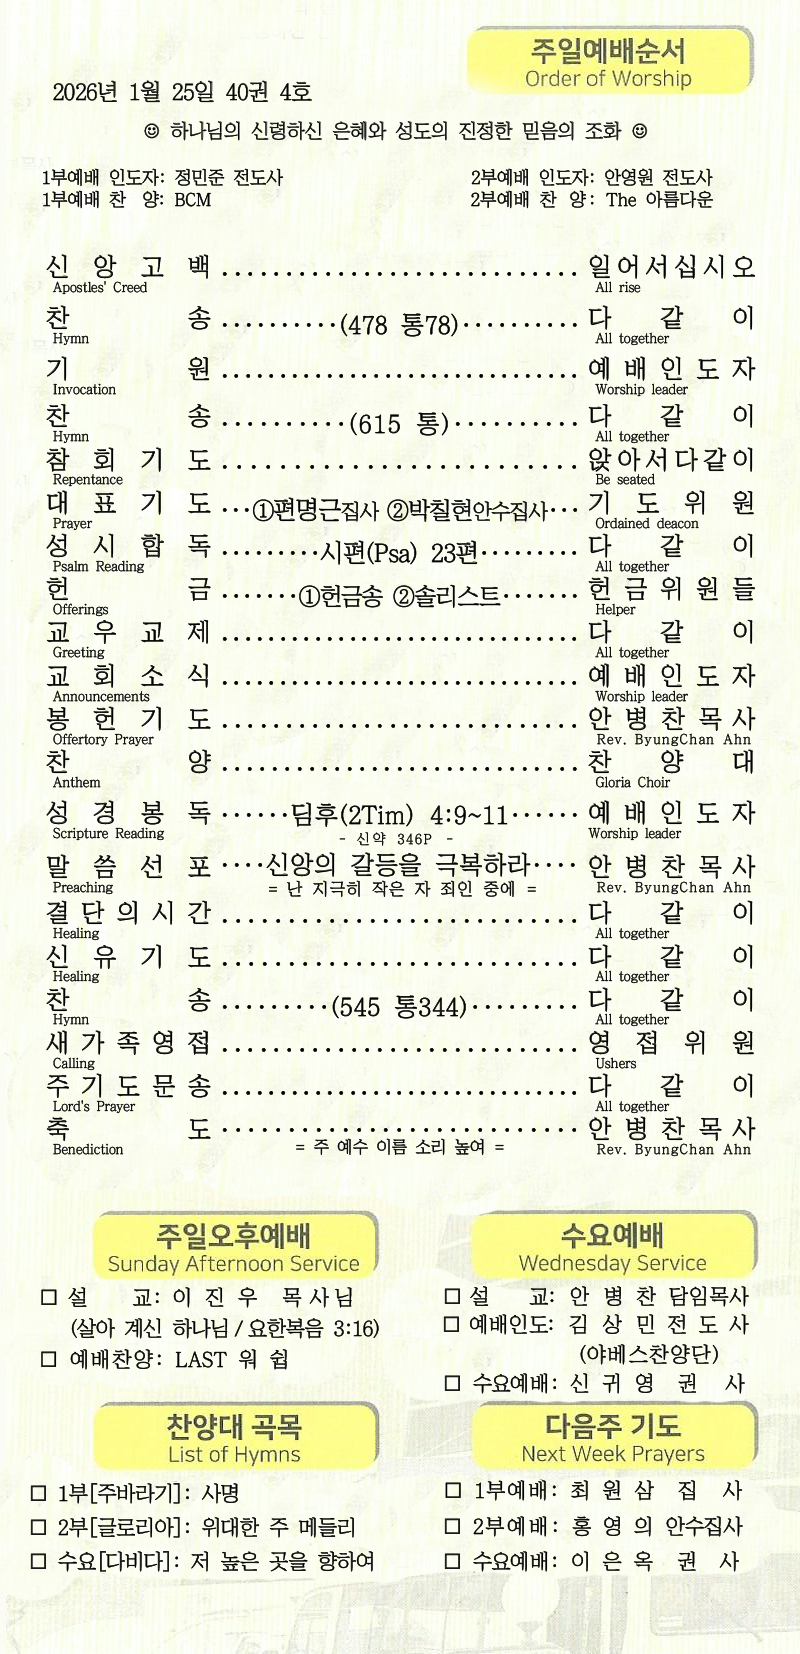 주일예배순서
Order of Worship
2026년 1월 25일 40권 4호
☺ 하나님의 신령하신 은혜와 성도의 진정한 믿음의 조화 ☺
1부예배 인도자: 정민준 전도사 2부예배 인도자: 안영원 전도사
1부예배 찬 양: BCM 2부예배 찬 양: The 아름다운
신 앙 고 백 ............................ 일어서십시오
Apostles' Creed All rise
찬 송 ·········(478 통78)········· 다 같 이
Hymn All together
기 원 ............................ 예 배 인 도 자
Invocation Worship leader
찬 송 ··········(615 통)·········· 다 같 이
Hymn All together
참 회 기 도 ............................ 앉아서다같이
Repentance Be seated
대 표 기 도 ···①편명근집사 ②박칠현안수집사··· 기 도 위 원
Prayer Ordained deacon
성 시 합 독 ········시편(Psa) 23편········ 다 같 이
Psalm Reading All together
헌 금 ······①헌금송 ②솔리스트······ 헌 금 위 원 들
Offerings Helper
교 우 교 제 ............................ 다 같 이
Greeting All together
교 회 소 식 ............................ 예 배 인 도 자
Announcements Worship leader
봉 헌 기 도 ............................ 안 병 찬 목 사
Offertory Prayer Rev. ByungChan Ahn
찬 양 ............................ 찬 양 대
Anthem Gloria Choir
성 경 봉 독 ······딤후(2Tim) 4:9~11······ 예 배 인 도 자
Scripture Reading - 신약 346P - Worship leader
말 씀 선 포 ····신앙의 갈등을 극복하라···· 안 병 찬 목 사
Preaching = 난 지극히 작은 자 죄인 중에 = Rev. ByungChan Ahn
결 단 의 시 간 ............................ 다 같 이
Healing All together
신 유 기 도 ............................ 다 같 이
Healing All together
찬 송 ·········(545 통344)········· 다 같 이
Hymn All together
새 가 족 영 접 ............................ 영 접 위 원
Calling Ushers
주 기 도 문 송 ............................ 다 같 이
Lord's Prayer All together
축 도 ............................ 안 병 찬 목 사
Benediction = 주 예수 이름 소리 높여 = Rev. ByungChan Ahn
주일오후예배
Sunday Afternoon Service
□ 설 교: 이 진 우 목 사 님
(살아 계신 하나님 / 요한복음 3:16)
□ 예배찬양: LAST 워 쉽
수요예배
Wednesday Service
□ 설 교: 안 병 찬 담임목사
□ 예배인도: 김 상 민 전 도 사
(야베스찬양단)
□ 수요예배: 신 귀 영 권 사
찬양대 곡목
List of Hymns
□ 1부[주바라기]: 사명
□ 2부[글로리아]: 위대한 주 메들리
□ 수요[다비다]: 저 높은 곳을 향하여
다음주 기도
Next Week Prayers
□ 1부예배: 최 원 삼 집 사
□ 2부예배: 홍 영 의 안수집사
□ 수요예배: 이 은 옥 권 사